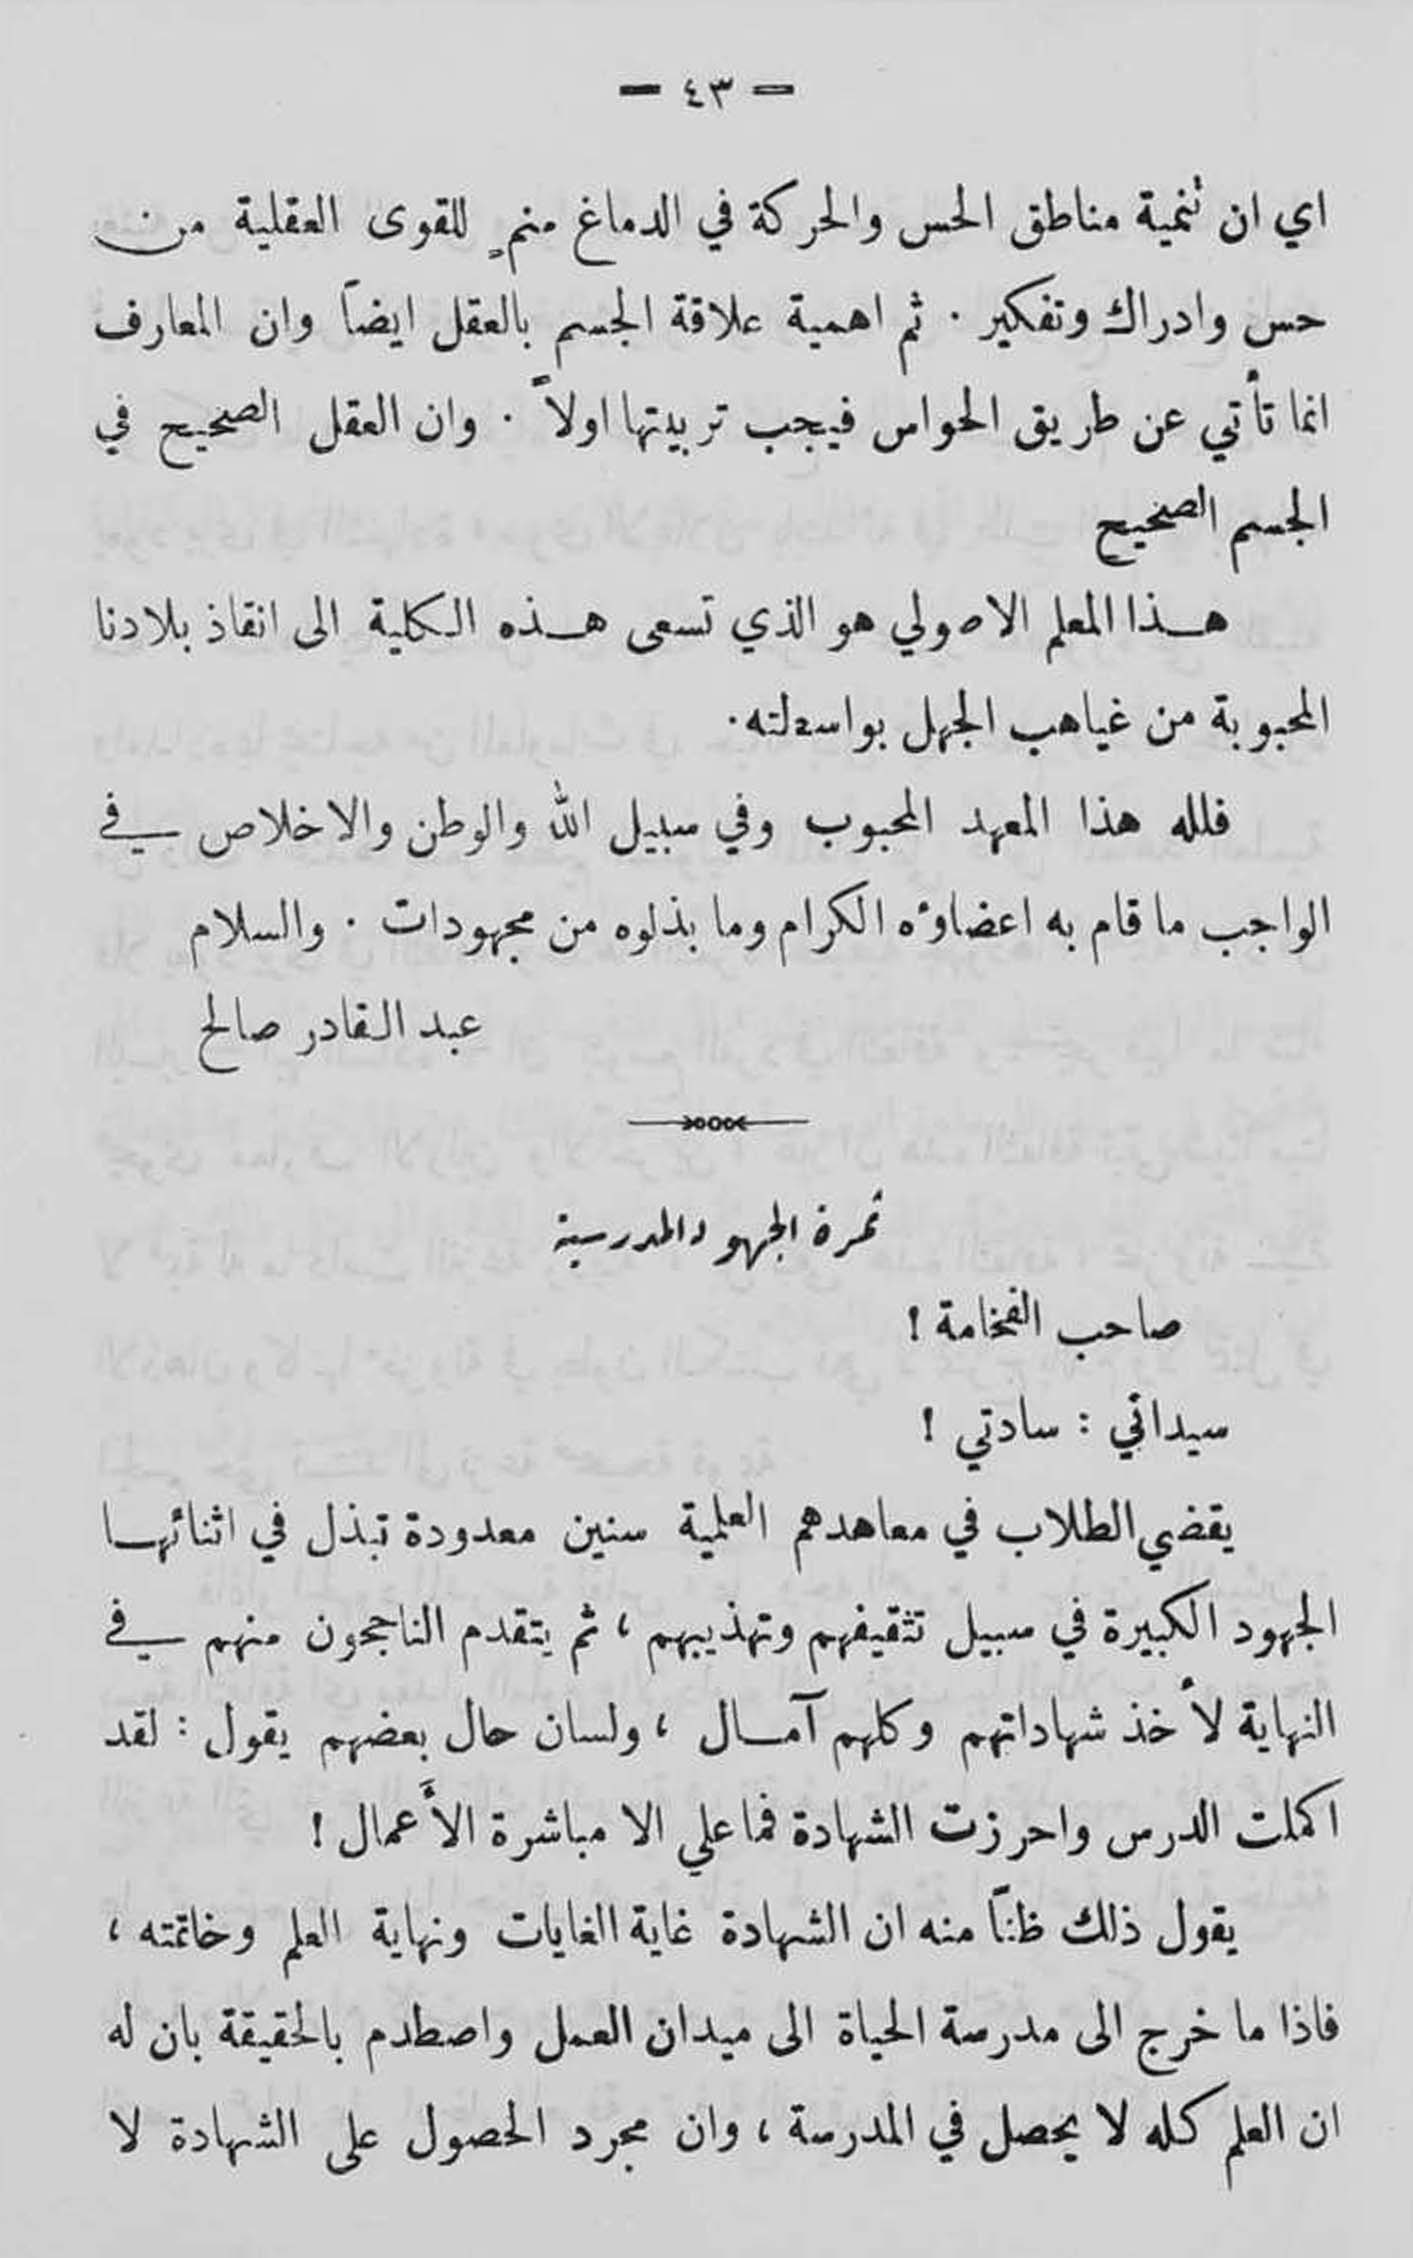 — ٤٣ —
اي ان تنمية مناطق الحس والحركة في الدماغ منمٍ للقوى العقلية من
حس وادراك وتفكير . ثم اهمية علاقة الجسم بالعقل ايضاً وان المعارف
انما تأتي عن طريق الحواس فيجب تربيتها اولاً . وان العقل الصحيح في
الجسم الصحيح
هـذا المعلم الاصولي هو الذي تسعى هـذه الكلية الى انقاذ بلادنا
المحبوبة من غياهب الجهل بواسطته .
فلله هذا المعهد المحبوب وفي سبيل الله والوطن والاخلاص في
الواجب ما قام به اعضاؤه الكرام وما بذلوه من مجهودات . والسلام
عبد القادر صالح
ثمرة الجهود المدرسية
صاحب الفخامة !
سيداتي : سادتي !
يقضي الطلاب في معاهدهم العلمية سنين معدودة تبذل في اثنائهـا
الجهود الكبيرة في سبيل تثقيفهم وتهذيبهم ، ثم يتقدم الناجحون منهم في
النهاية لأخذ شهاداتهم وكلهم آمـال ، ولسان حال بعضهم يقول : لقد
اكملت الدرس واحرزت الشهادة فما علي الا مباشرة الأَعمال !
يقول ذلك ظنّاً منه ان الشهادة غاية الغايات ونهاية العلم وخاتمته ،
فاذا ما خرج الى مدرسة الحياة الى ميدان العمل واصطدم بالحقيقة بان له
ان العلم كله لا يحصل في المدرسة ، وان مجرد الحصول على الشهادة لا